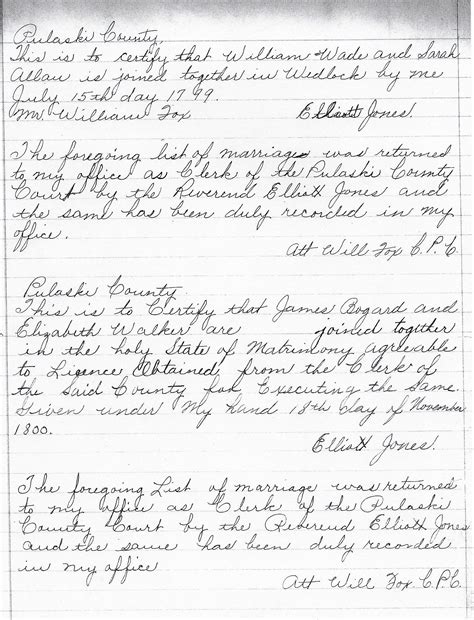 Pulaski County.
This is to certify that William Wade and Sarah
Allan is joined together in Wedlock by me
July 15th day 1799.
Mr. William Fox Elliott Jones.
The foregoing list of marriages was returned
to my office as Clerk of the Pulaski County
Court by the Reverend Elliott Jones and
the same has been duly recorded in my
office.
Att Will Fox C.P.C.
Pulaski County.
This is to Certify that James Bogard and
Elizabeth Walker are joined together
in the holy State of Matrimony agreeable
to Ligence Obtained from the Clerk of
the said County for Executing the Same.
Given under My hand 18th day of November
1800.
Elliott Jones.
The foregoing List of marriage was returned
to my office as Clerk of the Pulaski
County Court by the Reverend Elliott Jones
and the same has been duly recorded
in my office
Att Will Fox C.P.C.